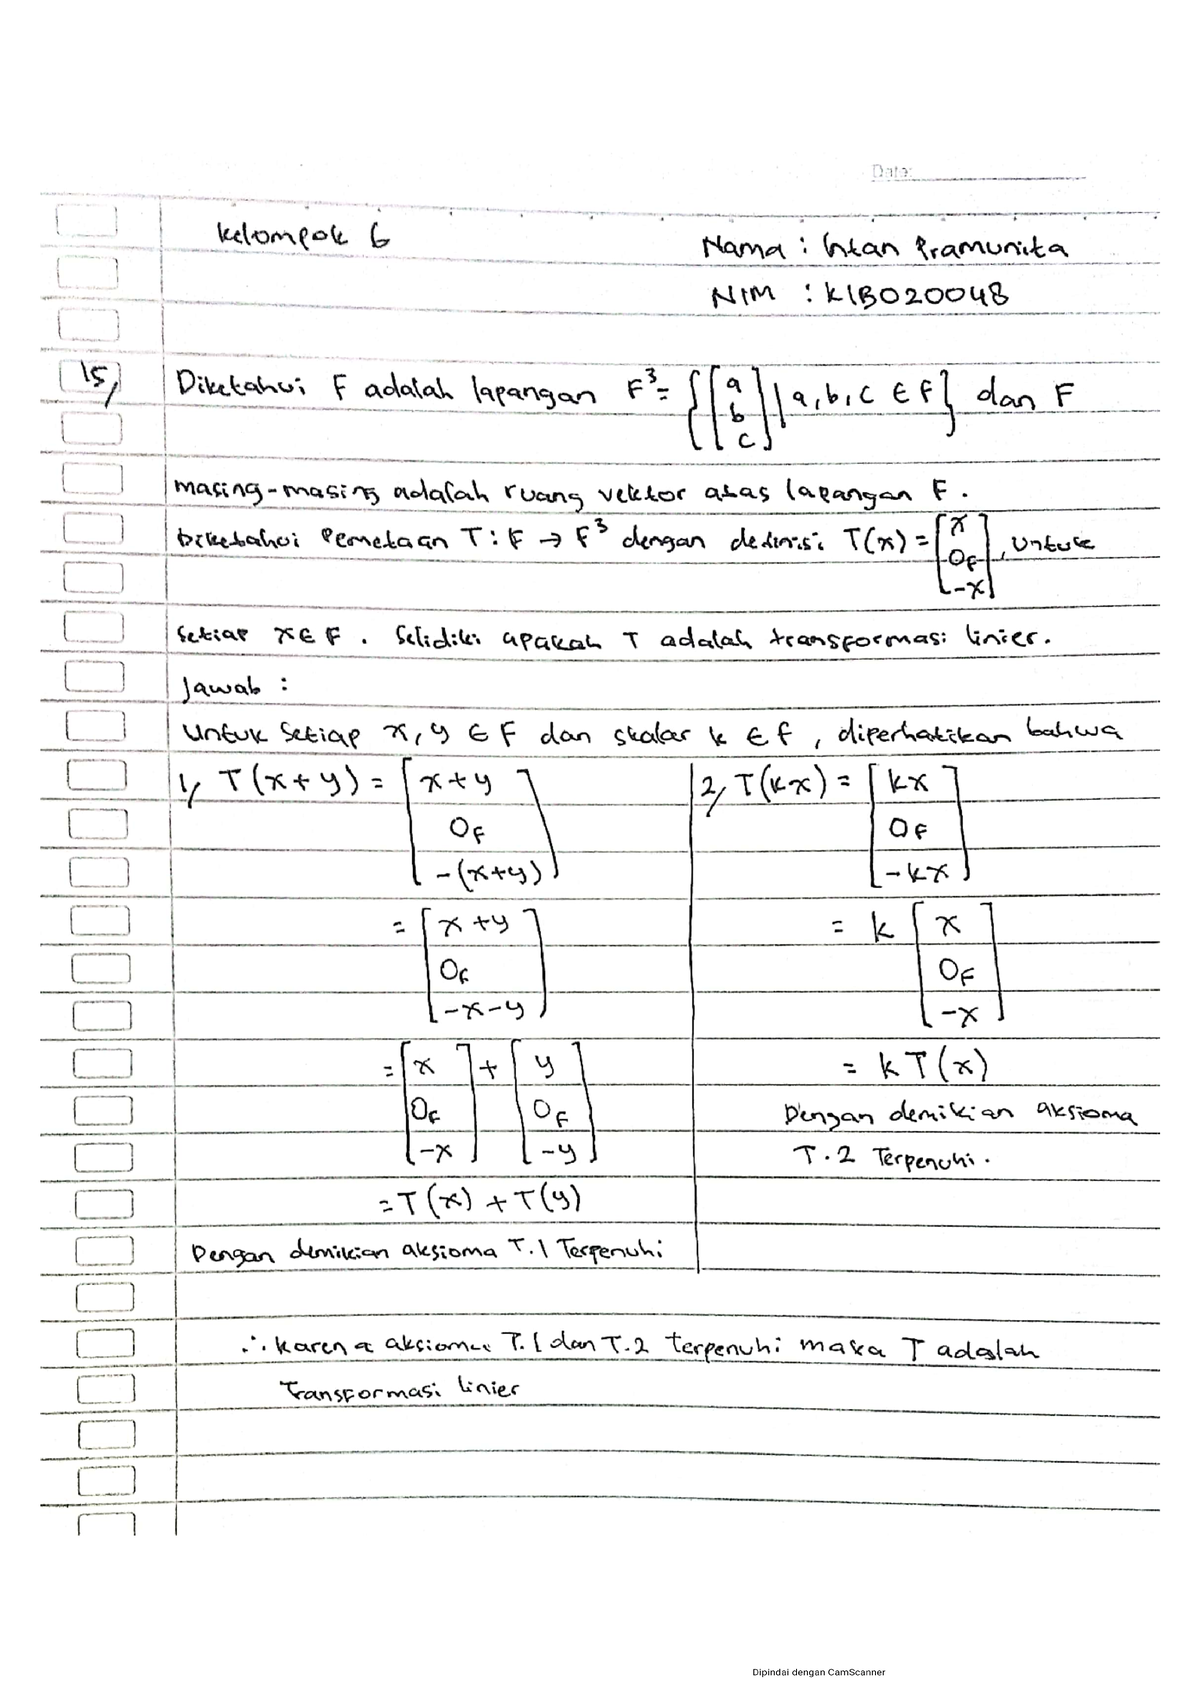 Date:
Kelompok 6
Nama : Intan Pramunita
NIM : K1B020048
15, Diketahui F adalah lapangan F³ = {[a b c] | a, b, c ∈ F} dan F
masing-masing adalah ruang vektor atas lapangan F.
Diketahui Pemetaan T : F → F³ dengan definisi T(x) = [x 0_F -x], Untuk
Setiap x ∈ F. Selidiki apakah T adalah transformasi linier.
Jawab :
Untuk Setiap x, y ∈ F dan skalar k ∈ F, diperhatikan bahwa
1, T(x+y) = [x+y 0_F -(x+y)]
= [x+y 0_F -x-y]
= [x 0_F -x] + [y 0_F -y]
= T(x) + T(y)
Dengan demikian aksioma T.1 Terpenuhi
2, T(kx) = [kx 0_F -kx]
= k [x 0_F -x]
= k T(x)
Dengan demikian aksioma
T.2 Terpenuhi.
∴ Karena aksioma T.1 dan T.2 terpenuhi maka T adalah
Transformasi linier
Dipindai dengan CamScanner